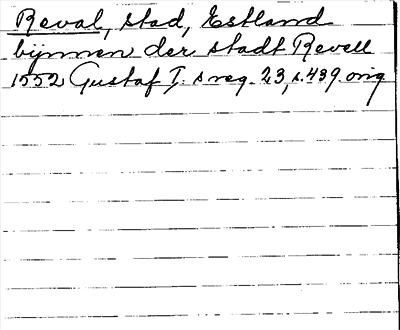 Reval, stad, Estland
bijnnen der stadt Revell
1552 Gustaf I:s reg. 23, s. 439 orig